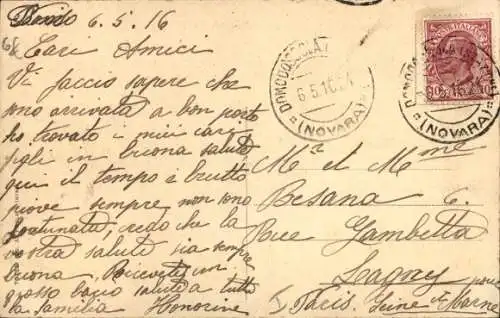 6.5.16
Cari Amici
Vi faccio sapere che
sono arrivata a bon porto
ho trovato i miei cari
figli in buona salute
qui il tempo è brutto
piove sempre, non sono
fortunata, credo che la
vostra salute sia sempre
buona. Ricevete un
grosso bacio saluto a tutta
la familia Honorine
DOMODOSSOLA
6.5.16
(NOVARA)
POSTE ITALIANE
DOMODOSSOLA
(NOVARA)
Mr et Mme
Besana C.
Rue Gambetta
Lagny
Paris. Seine et Marne